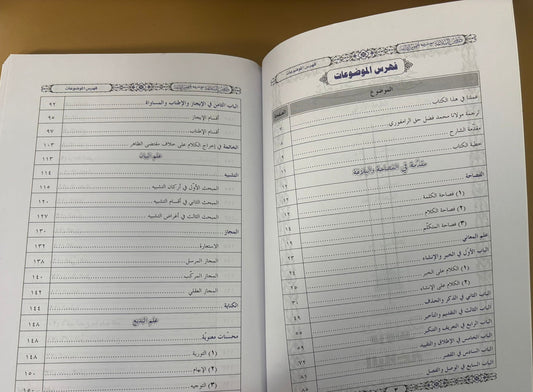 فهرس الموضوعات
فهرس الموضوعات
الموضوع
الصفحة
عملنا في هذا الكتاب
ترجمة مولانا محمد فضل حق الرامفوري ٧
مقدمة الشارح
خطبة الكتاب ١١
مقدمة في الفصاحة والبلاغة
الفصاحة ١٢
(١) فصاحة الكلمة ١٢
(٢) فصاحة الكلام ١٤
(٣) فصاحة المتكلّم
علم المعاني
الباب الأول في الخبر والإنشاء ٢٤
(١) الكلام على الخبر ٢٥
(٢) الكلام على الإنشاء
الباب الثاني في الذكر والحذف
الباب الثالث في التقديم والتأخير
الباب الرابع في التعريف والتنكير
الباب الخامس في الإطلاق والتقييد
الباب السادس في القصر
الباب السابع في الوصل والفصل
٣
فهرس الموضوعات
الباب الثامن في الإيجاز والإطناب والمساواة ٩٢
أقسام الإيجاز ٩٥
أقسام الإطناب ٩٧
الخاتمة في إخراج الكلام على خلاف مقتضى الظاهر ١٠٣
علم البيان ١١٣
التشبيه ١١٤
المبحث الأول في أركان التشبيه ١١٥
المبحث الثاني في أقسام التشبيه ١٢٠
المبحث الثالث في أغراض التشبيه ١٢٧
المجاز ١٣٠
الاستعارة ١٣٢
المجاز المرسل ١٣٨
المجاز المركّب ١٤٠
المجاز العقلي ١٤٢
الكناية ١٤٤
علم البديع ١٤٨
محسّنات معنويّة ١٤٨
(١) التورية ١٤٨
(٢) الإبهام
(٣) التوجيه